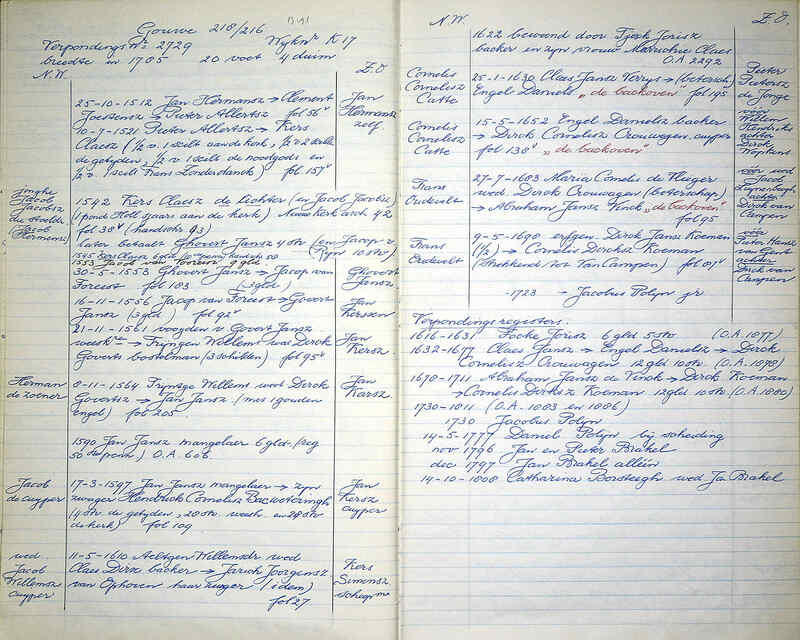 Gouwe 218/216
Verpondings No 2729 Wyk No K17
breedte in 1785 20 voet 4 duim
N.W. Z.O.
25-10-1512 Jan Hermansz → Clement
Joostensz → Pieter Allertsz fol 56v
10-7-1521 Pieter Allertsz → Kers
Claesz (½ v. 1 scilt aan de kerk, ½ v 2 scilde
de getyden, ½ v 1 scilt de noodgods en
½ v. 1 scilt Frans Londerdanck) fol 157v
Jan
Hermansz
zelf
1542 Kers Claesz de Lichter (en Jacob Jacobsz)
(1 pond Holl. jaars aan de kerk) Nieuwe kerk arch 42
fol 38v (handschr 93)
later betaalt Ghovert Jansz 4 str (en Jacop v.
Zyn 10 str)
Jacob
Jacobsz
(Jacob
Hermensz)
1553 Jacob van Foreest 9 gld
30-5-1553 Ghovert Jansz → Jacop van
Foreest fol 183 (2 gld)
Ghovert
Jansz.
16-11-1556 Jacop van Foreest → Govert
Jansz (3 gld) fol 92v
Jan
Kerssen
21-11-1561 voogden v Govert Jansz
weesk → Tryngen Willems wed Dirck
Goverts bostelman (3 schilden) fol 95v
Jan
Kersz.
Herman
de zoener
8-11-1564 Tryntge Willems wed Dirck
Govertsz → Jan Jansz (met 1 gouden
engel) fol 205
Jan
Karsz.
1590 Jan Jansz mangelaer 6 gld. (reg
50ste penn.) O.A. 606
Jacob
de cuyper
17-3-1597 Jan Jansz mangelaer → zyn
zwager Hendrick Cornelisz Backeteringh
(4 str de getyden, 20 str weesh. en 28 str
de kerk) fol 109
Jan
Kersz
cuyper
wed.
Jacob
Willemsz
cuyper
11-5-1610 Aeltgen Willemsdr wed
Claes Dirck backer → Jarich Joorgensz.
van Ophoven haar zwager (idem)
fol 27
Kers
Simonsz
schepme
N.W. Z.O.
1622 bewoond door Fock Jorisz
backer en zyn vrouw Marichie Claes
O.A. 2292
Cornelis
Cornelisz
Catte
25-1-1630 Claes Jansz Verrys → (betersch)
Engel Daniels „de backoven" fol 195
Pieter
Pietersz
de Jonge
Cornelis
Cornelisz
Catte
15-5-1652 Engel Danielsz backer
→ Dirck Cornelisz Crouwagen. cuyper
fol 138v „de backoven"
voor
Willem
Hendricks
achter
Dirck
Frans
Oudevelt
27-7-1683 Maria Cornelis de Vlieger
wed. Dirck Crouwagen (beterschap)
→ Abraham Jansz Vinck „de backoven"
fol 95
voor wed
Jacob
achter
Dirck van
Campen
Frans
Oudevelt
9-5-1698 erfgen. Dirck Jansz Koeman
(½) → Cornelis Dircksz Koeman
(strekkend tot Van Campen) fol 187v
voor
Pieter Hansz
van Gent
achter
Dirck van
Campen
-1723 - Jacobus Polyn jr
Verpondings registers.
1616-1631 Focke Jorisz 6 gld 5 str (O.A. 1077)
1632-1677 Claes Jansz → Engel Danielsz → Dirck
Cornelisz Crouwagen 12 gld 10 str. (O.A. 1078)
1678-1711 Abraham Jansz de Vinck → Dirck Koeman
→ Cornelis Dircksz Koeman 12 gld 10 str (O.A. 1080)
1730-1811 (O.A. 1083 en 1086)
1730 Jacobus Polyn
14-5-1777 Daniel Polyn bij scheiding
nov 1796 Jan en Pieter Brakel
dec 1797 Jan Brakel alléén
14-10-1808 Catharina Bonsteigh wed Jn Brakel